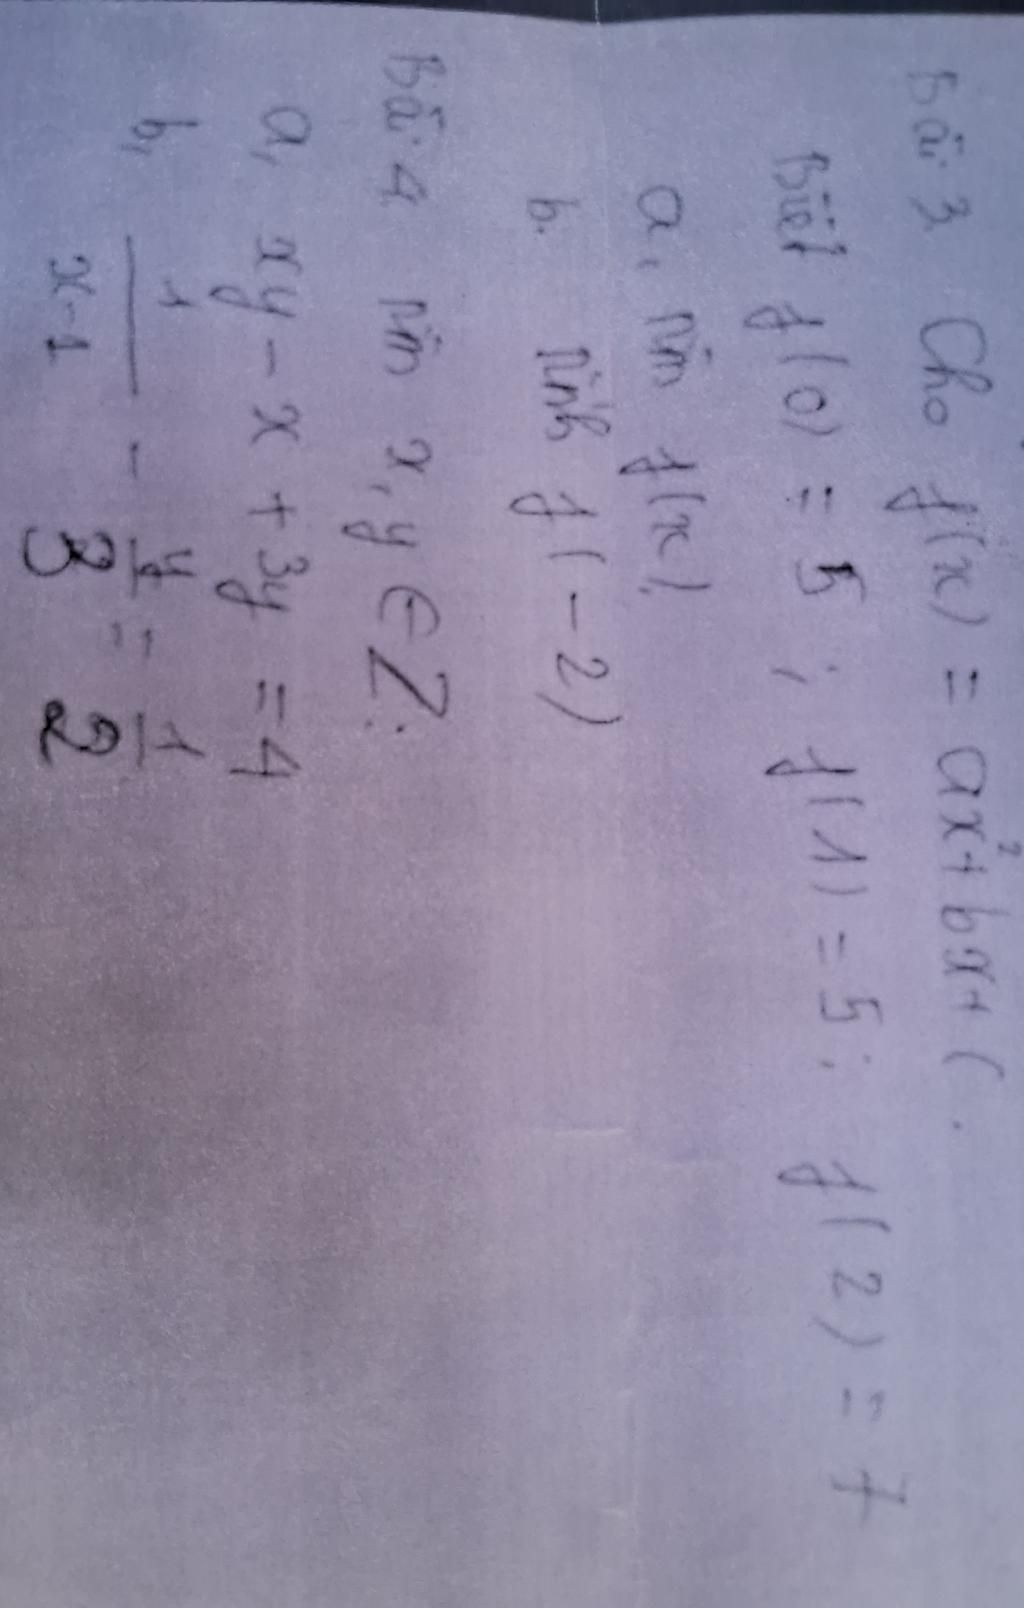 Bài 3 Cho f(x) = ax² + bx + c.
Biết f(0) = 5 ; f(1) = 5 ; f(2) = 7
a, Tìm f(x).
b. Tính f(-2)
Bài 4 Tìm x, y ∈ Z:
a, xy - x + 3y = 4
b, 1/(x-1) - y/3 = 1/2